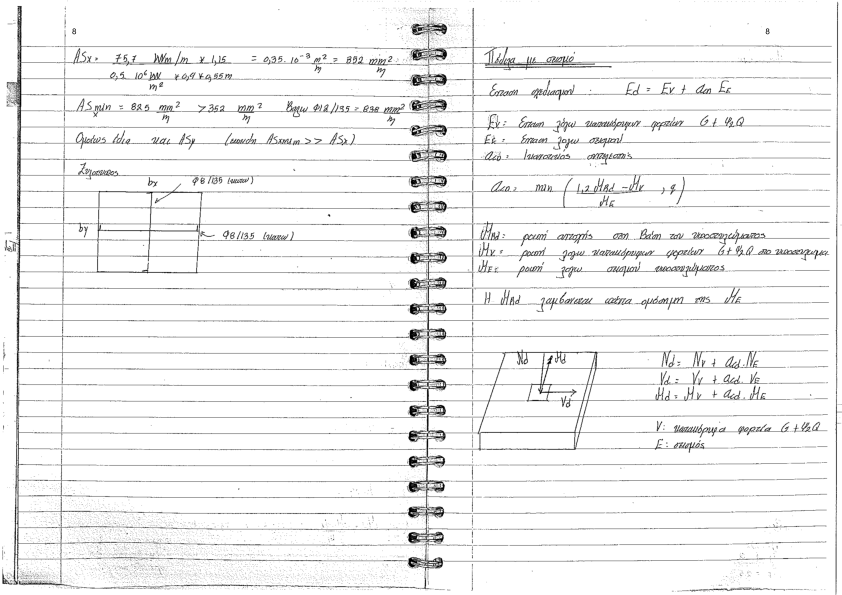 8
ASx = 75,7 kNm/m * 1,15 / 0,5 . 10⁶ kN/m² * 0,9 * 0,55m = 0,35 . 10⁻³ m²/m = 352 mm²/m
ASmin x = 825 mm²/m > 352 mm²/m Βαζω Φ12/135 = 838 mm²/m
Ομοιως ίδια και ASy (επειδή ASxmin >> ASx)
Ξυλοτυπος
bx Φ8/135 (κατω)
by Φ8/135 (κατω)
8
Πέδιλα με σεισμό
Ενταση σχεδιασμού : Ed = Ev + acd EE
Ev = Ενταση λόγω κατακόρυφων φορτίων G + Ψ2Q
EE = Ενταση λόγω σεισμού
acd = Ικανοτικός συντελεστής
acd = min ( 1,2 MRd - Mv / ME , q )
MRd = ροπή αντοχής στη βάση του υποστυλώματος
Mv = ροπή λόγω κατακόρυφων φορτίων G + Ψ2Q στο υποστύλωμα
ME = ροπή λόγω σεισμού υποστυλώματος
Η MRd λαμβάνεται πάντα ομόσημη της ME
Nd Md
Vd
Nd = Nv + acd . NE
Vd = Vv + acd . VE
Md = Mv + acd . ME
V: κατακόρυφα φορτία G + Ψ2Q
E: σεισμός